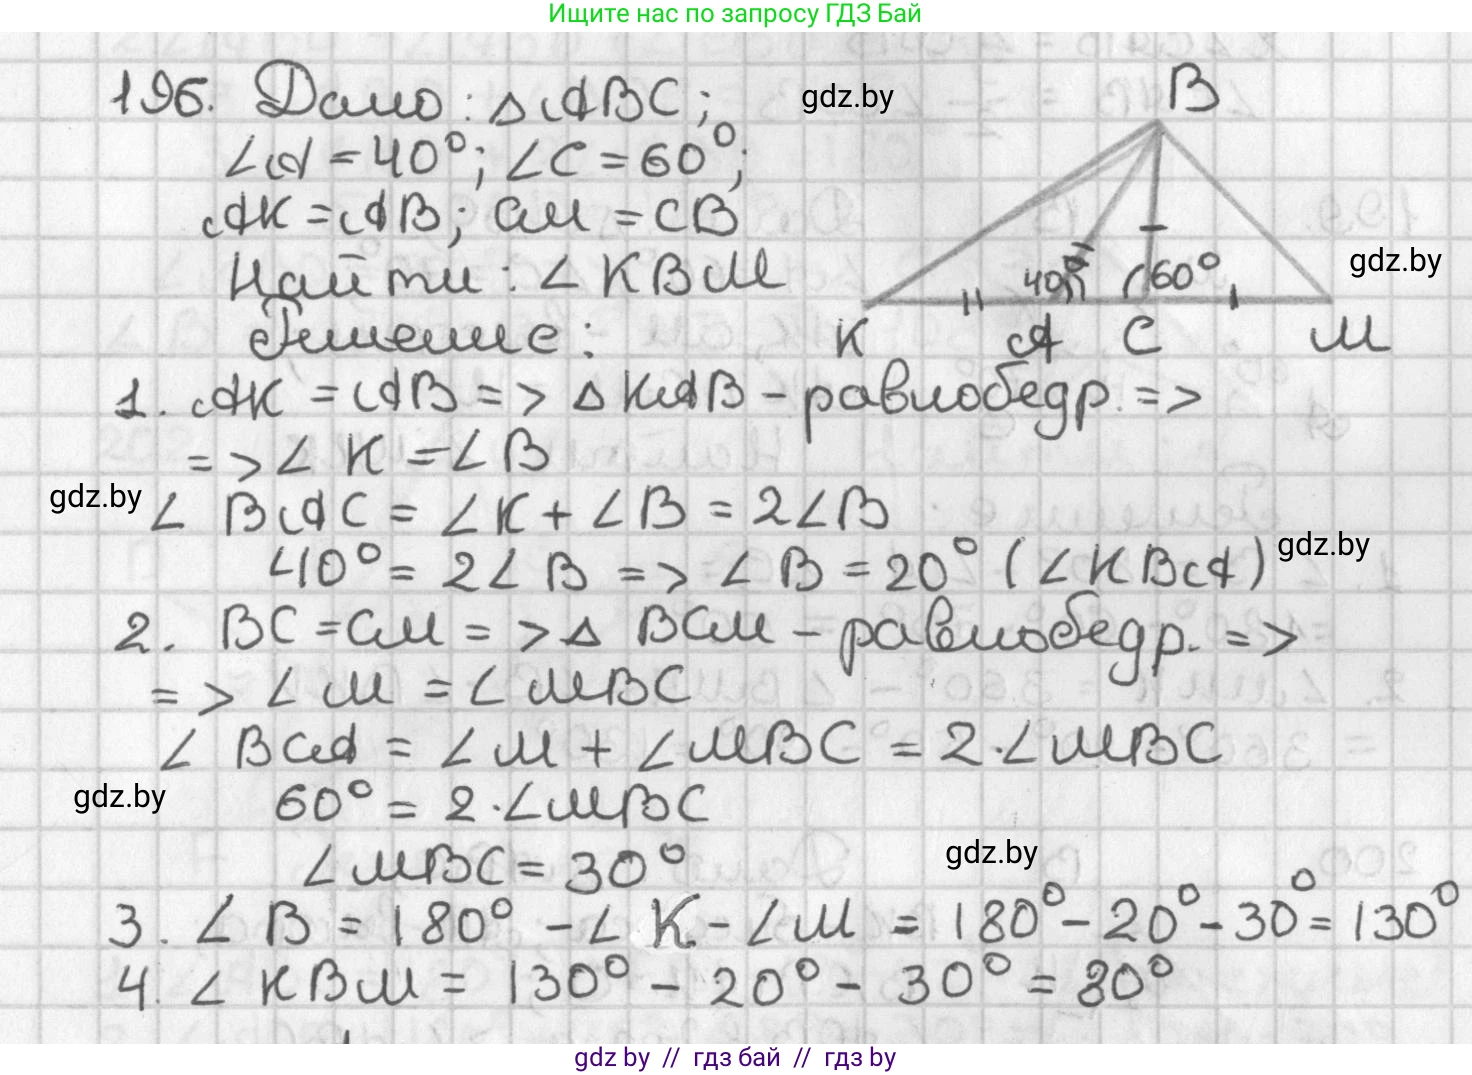 Ищите нас по запросу ГДЗ Бай
196. Дано: △ABC;
∠A = 40°; ∠C = 60°;
AK = AB; CM = CB
Найти: ∠KBM
Решение:
gdz.by
B
gdz.by
40° 60°
K A C M
1. AK = AB => △KAB – равнобедр. =>
=> ∠K = ∠B
gdz.by
∠BAC = ∠K + ∠B = 2∠B
40° = 2∠B => ∠B = 20° (∠KBA)
gdz.by
2. BC = CM => △ BCM – равнобедр. =>
=> ∠M = ∠MBC
∠BCA = ∠M + ∠MBC = 2·∠MBC
gdz.by
60° = 2·∠MBC
∠MBC = 30°
gdz.by
3. ∠B = 180° - ∠K - ∠M = 180° - 20° - 30° = 130°
4. ∠KBM = 130° - 20° - 30° = 80°
gdz by // гдз бай // гдз by